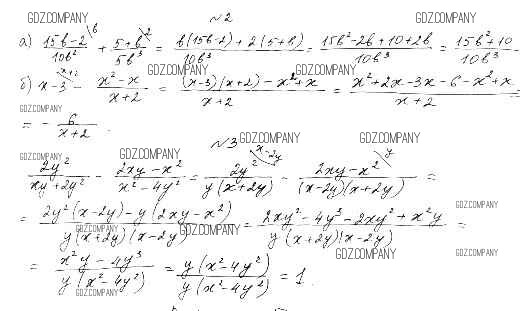 GDZ.COMPANY №2 GDZ.COMPANY
а) (15b-2)/(10b²) \b + (5+b)/(5b³) \2 = (b(15b-2)+2(5+b))/(10b³) = (15b²-2b+10+2b)/(10b³) = (15b²+10)/(10b³)
GDZ.COMPANY
б) x-3 \x+2 - (x²-x)/(x+2) = ((x-3)(x+2)-x²+x)/(x+2) = (x²+2x-3x-6-x²+x)/(x+2) =
GDZ.COMPANY
= - 6/(x+2).
№3 GDZ.COMPANY GDZ.COMPANY
GDZ.COMPANY GDZ.COMPANY
2y²/(xy+2y²) - (2xy-x²)/(x²-4y²) = 2y²/(y(x+2y)) \x-2y - (2xy-x²)/((x-2y)(x+2y)) \y =
= (2y²(x-2y)-y(2xy-x²))/(y(x+2y)(x-2y)) = (2xy²-4y³-2xy²+x²y)/(y(x+2y)(x-2y)) =
GDZ.COMPANY GDZ.COMPANY
GDZ.COMPANY GDZ.COMPANY
= (x²y-4y³)/(y(x²-4y²)) = (y(x²-4y²))/(y(x²-4y²)) = 1.
GDZ.COMPANY